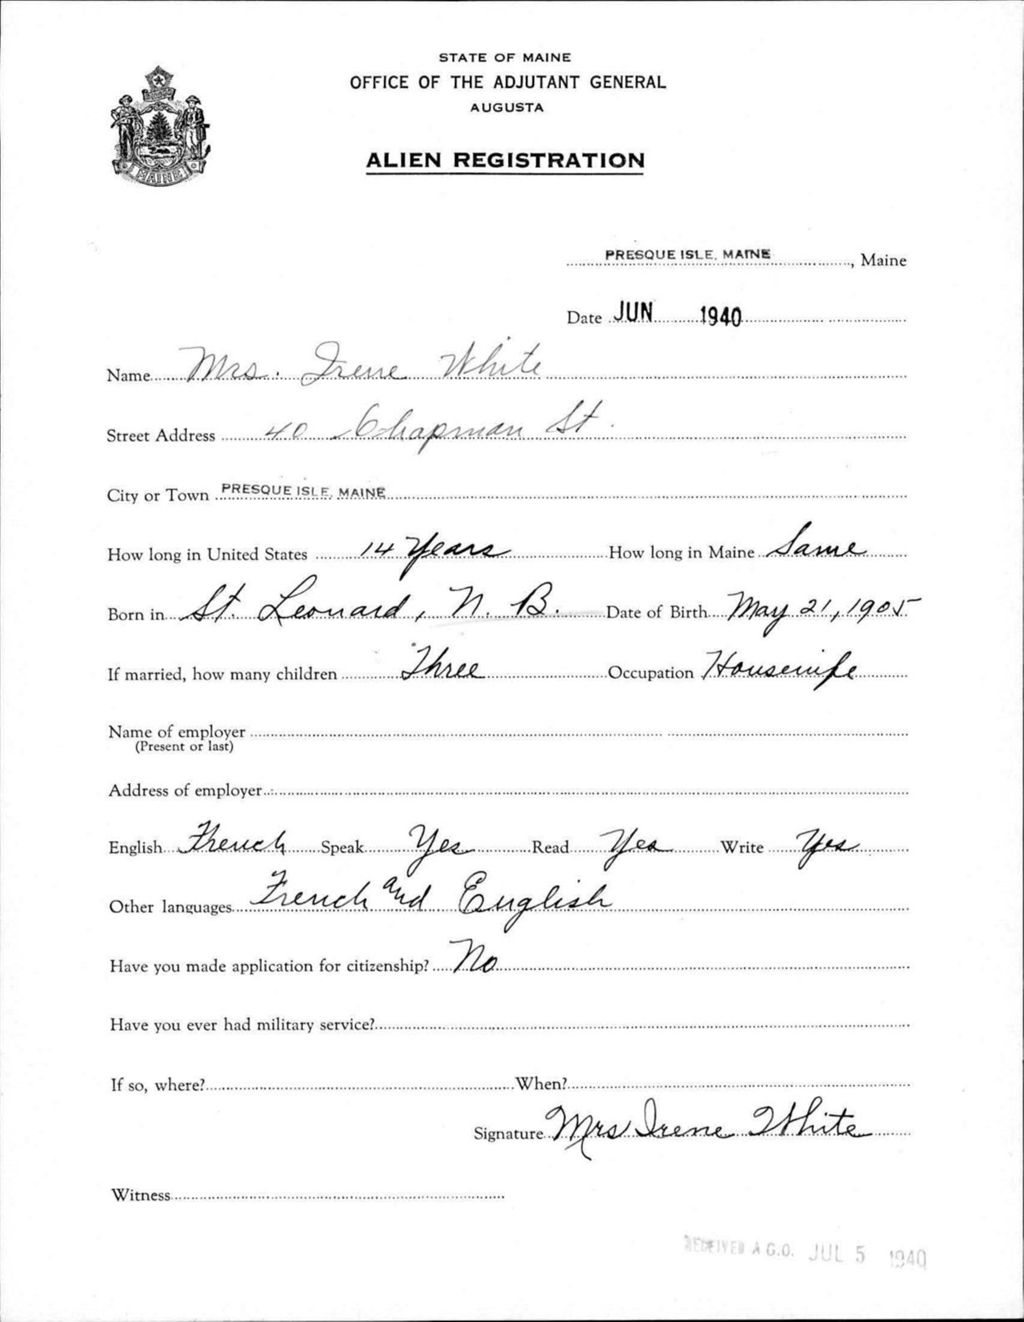 STATE OF MAINE
OFFICE OF THE ADJUTANT GENERAL
AUGUSTA
ALIEN REGISTRATION
MAINE
PRESQUE ISLE, MAINE, Maine
Date JUN 1940
Name Mrs. Irene White
Street Address 40 Chapman St.
City or Town PRESQUE ISLE, MAINE
How long in United States 14 Years How long in Maine Same
Born in St. Leonard, N. B. Date of Birth May 21, 1905
If married, how many children Three Occupation Housewife
Name of employer
(Present or last)
Address of employer
English French Speak Yes Read Yes Write Yes
Other languages French and English
Have you made application for citizenship? No
Have you ever had military service?
If so, where? When?
Signature Mrs Irene White
Witness
RECEIVED A.G.O. JUL 5 1940